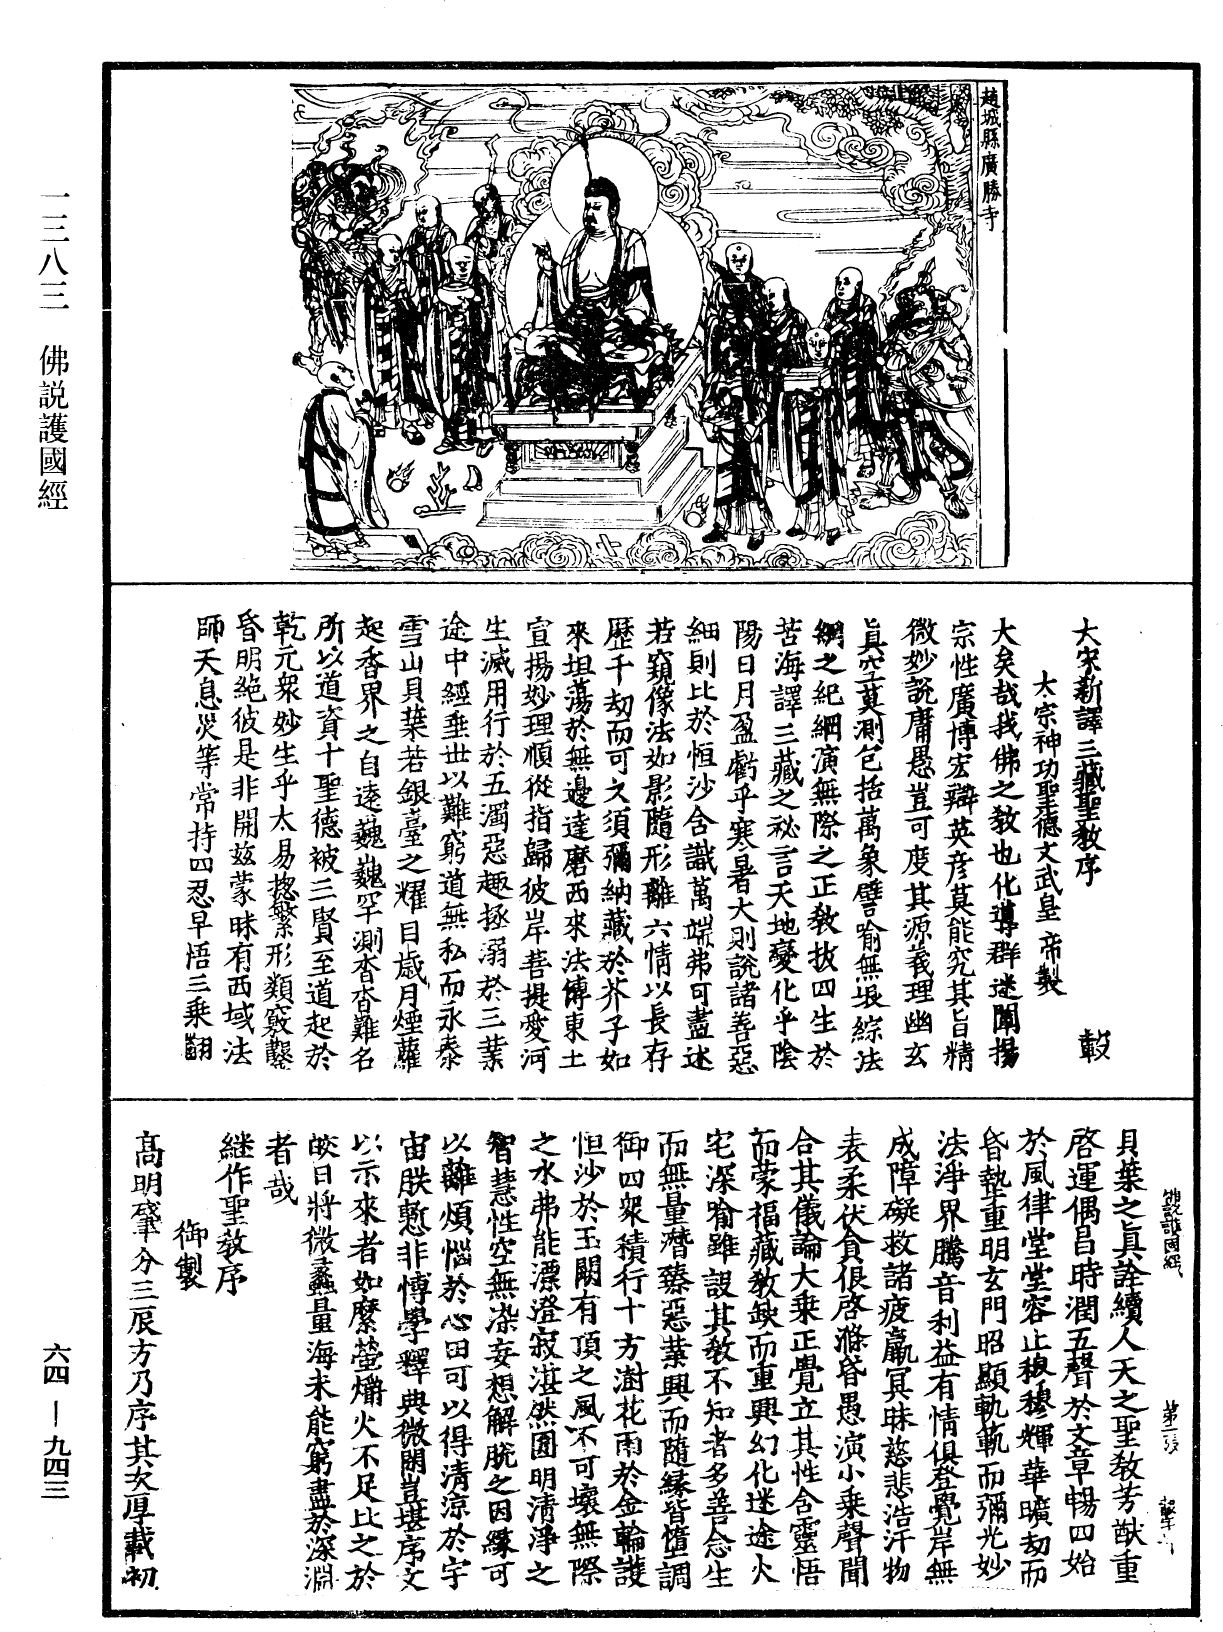 趙城縣廣勝寺
一三八三　佛説護國經
六四—九四三
大宋新譯三藏聖教序
太宗神功聖德文武皇帝製
大矣哉我佛之教也化導群迷闡揚
宗性廣博宏辯英彥莫能究其旨精
微妙說庸愚豈可度其源義理幽玄
真空莫測包括萬象譬喻無垠綜法
網之紀綱演無際之正教拔四生於
苦海譯三藏之祕言天地變化乎陰
陽日月盈虧乎寒暑大則說諸善惡
細則比於恒沙含識萬端弗可盡述
若窺像法如影隨形離六情以長存
歷千劫而可久須彌納藏於芥子如
來坦蕩於無邊達磨西來法傳東土
宣揚妙理順從指歸彼岸菩提愛河
生滅用行於五濁惡趣拯溺於三業
途中經垂世以難窮道無私而永泰
雪山貝葉若銀臺之耀目歲月煙蘿
起香界之自遠巍巍罕測杳杳難名
所以道資十聖德被三賢至道起於
乾元眾妙生乎太易揔繁形類竅鑿
昏明絕彼是非開茲蒙昧有西域法
師天息災等常持四忍早悟三乘翻
貝葉之真詮續人天之聖教芳猷重
啓運偶昌時潤五聲於文章暢四始
於風律堂堂容止穆穆輝華曠劫而
昏蟄重明玄門昭顯軌範而彌光妙
法淨界騰音利益有情俱登覺岸無
成障礙救諸疲羸冥昧慈悲浩汗物
表柔伏貪很啓滌昏愚演小乘聲聞
合其儀論大乘正覺立其性含靈悟
而蒙福藏教缺而重興幻化迷途火
宅深喻雖設其教不知者多善念生
而無量潛臻惡業興而隨緣皆墮調
御四眾積行十方澍花雨於金輪護
恒沙於玉闕有頂之風不可壞無際
之水弗能漂澄寂湛然圓明清淨之
智慧性空無染妄想解脫之因緣可
以離煩惱於心田可以得清涼於宇
宙朕慙非博學釋典微閑豈堪序文
以示來者如縻螢爝火不足比之於
皎日將微蠡量海未能窮盡於深淵
者哉
継作聖教序
御製
高明肇分三辰方乃序其次厚載初